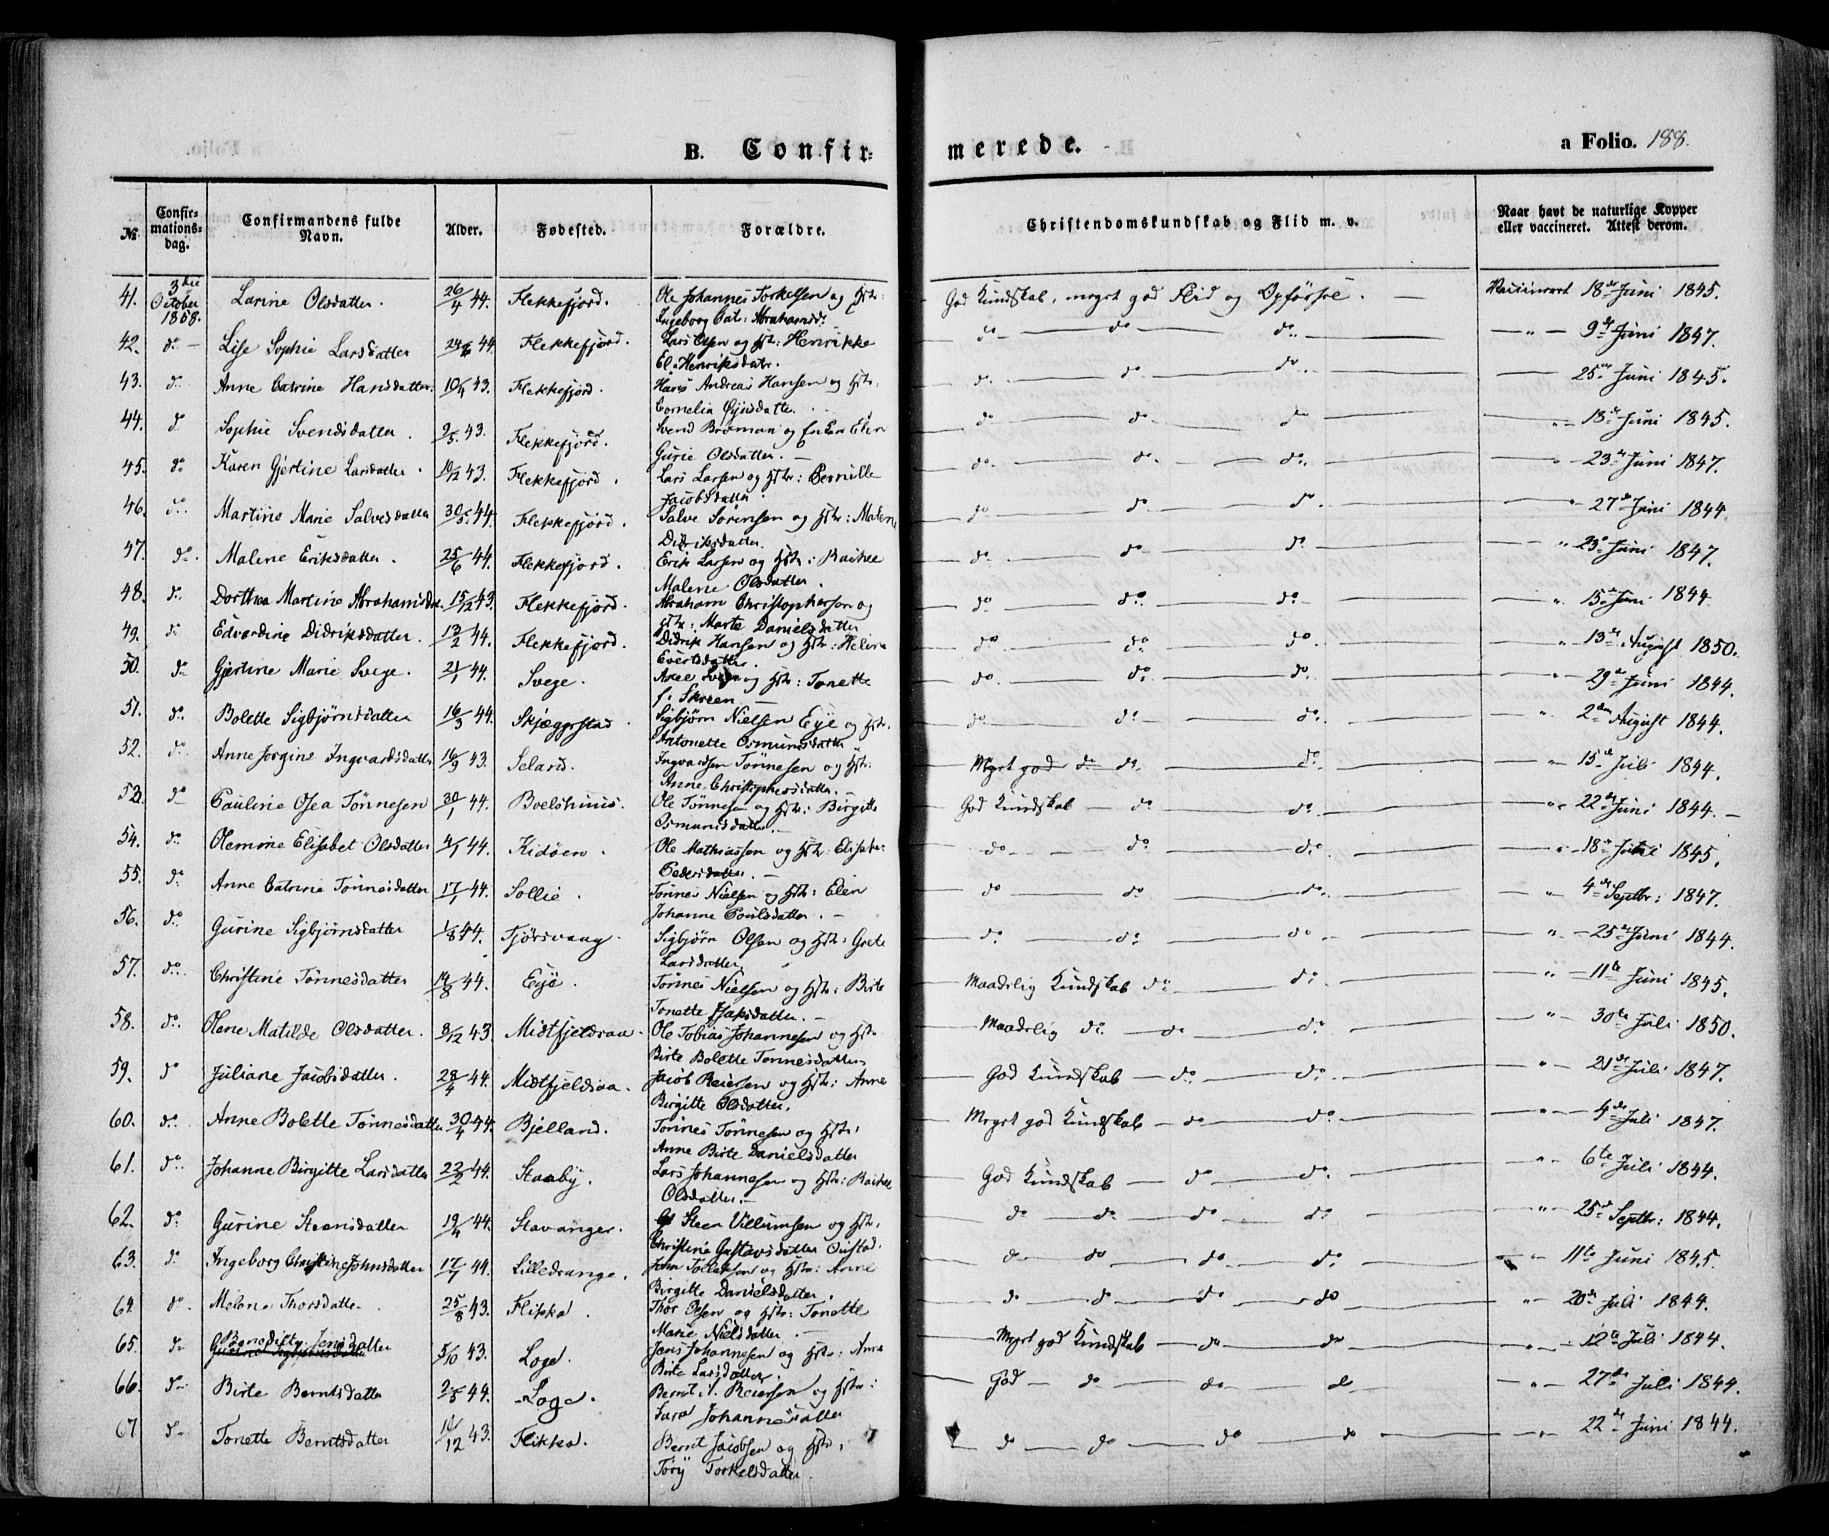 B. Confir-
merede.
a Folio. 188.
№
Confir-
mations-
dag.
Confirmandens fulde
Navn.
Alder.
Fødested.
Forældre.
Christendomskundskab og Flid m. v.
Naar havt de naturlige Kopper
eller vaccineret. Attest derom.
41. 3die October 1858. Larine Olsdatter. 26/4 44. Flekkefjord. Ole Johannes Torkelsen og Hst: God Kundskab, meget god Flid og Opførsel. — Vaccineret 18de Juni 1845.
Ingeborg Cat: Abrahamsd:
42. do — Lise Sophie Larsdatter 24/6 44. Flekkefjord. Lars Olsen og Hst: Henrikke do — do do. — " — 9de Juni 1847.
El. Henriksdatr.
43. do Anne Catrine Hansdatter. 10/4 43. Flekkefjord. Hans Andreas Hansen og Hst. do. do do. 25de Juni 1845.
Cornelia
44. do Sophie Svendsdatter. 2/5 43. Flekkefjord. Svend Broman og Elen do do do 18de Juni 1845.
Gurie Olsdatter. —
45. do Karen Gjertine Larsdatter. 10/12 43. Flekkefjord. Lars Larsen og Hstr: Pernille do. do. do. — 23de Juni 1847.
Jacobsdatter
46. do. Martine Marie Salvesdatter 30/5 44. Flekkefjord. Salve Sørensen og Hstr: Malene do do do — 27de Juni 1844.
Didriksdatter.
47. do. Malene Eriksdatter. 25/6 44. Flekkefjord. Erik Larsen og Hstr: Rachel do do do " 23de Juni 1847.
Malene Olsdatter.
48. do. Dorthea Martine Abrahamsdat. 15/12 43. Flekkefjord. Abraham Christophersen og do do. do. " 15de Juni 1844
Hstr: Marte Danielsdatter
49. do Edvardine Didriksdatter. 13/2 44. Flekkefjord. Didrik Hansen og Hstr: Helene do do. do. " — 13de August 1850.
Evertsdatter.
50. do Gjertine Marie Svege. 21/1 44. Svege. Axel Svege og Hstr: Tonette do. do. do. " — 29de Juni 1844.
f. Skreen. —
51. do. Bolette Sigbjørnsdatter 16/3 44. Skjæggestad Sigbjørn Nielsen Eye og Hstr. do do. do. " 2den August 1844.
Antonette Osmundsdatter
52. do. Anne Jorgine Ingvardsdatter 16/9 43. Seland. Ingvardsen Tønnesen og Hstr: Meget god do do. do. " — 15de Juli 1844.
Anne Christophersdatter. —
53. do Pauline Osea Tønnesen 30/1 44. Boelshuus. Ole Tønnesen og Hstr: Birgitte God Kundskab — do do. " — 22de Juni 1844. —
Osmundsdatter. —
54. do. Olemine Elisabet Olsdatter 4/1 44. Kidøen. Ole Mathiassen og Hstr: Elisabet do do. do. " — 18de Juli 1845.
Pedersdatter. —
55. do. Anne Catrine Tønnesdatter 17/1 44. Sollie. Tønnes Nielsen og Hstr: Elen do do. do. " — 4de Septbr: 1847.
Johanne Poulsdatter. —
56. do Gurine Sigbjørnsdatter 1/8 44. Tjørsvaag. Sigbjørn Olsen og Hstr: Grete do. do. do " — 25de Juni 1844.
Larsdatter
57. do. Christine Tønnesdatter 14/8 44. Eye. Tønnes Nielsen og Hstr: Birte Maadelig Kundskab do. do. " — 11te Juni 1845.
Tonette
58. do. Olene Matilde Olsdatter. 3/12 43. Midtfjeldsaa. Ole Tobias Johannesen og Hstr: Maadelig do. do do. " — 30te Juli 1850.
Birte Bolette Tønnesdatter
59. do Juliane Jacobsdatter. 28/4 44. Midtfjeldsaa. Jacob Reiersen og Hstr: Anne God Kundskab — do. do. " — 21de Juli 1847.
Birgitte Olsdatter.
60. do. Anne Bolette Tønnesdatter 30/4 44. Bjelland. Tønnes Tønnesen og Hstr: Meget god Kundskab — do do. " — 4de Juli 1847.
Anne Birte Danielsdatter
61. do. Johanne Birgitte Larsdatter 23/2 44. Staaby. Lars Johannesen og Hstr: Rachel God Kundskab — do do. " — 6te Juli 1844.
Olsdatter. —
62. do. Gurine Steensdatter 19/4 44. Stavanger. Steen Villumsen og Hstr. do do. do do. " — 25de Septbr: 1844.
Christine Gustavsdatter
63. do Ingeborg Christine Johnsdatter 17/7 44. Lilledrange. John Tollaksen og Hstr: Anne do do do. do. " — 11te Juni 1845.
Birgitte Danielsdatter.
64. do. Melene Thorsdatter. 25/8 43. Flikka. Thor Olsen og Hstr: Tonette do do do do " — 20de Juli 1844.
Marie Nielsdatter. —
65. do Benedicte Jensdatter 5/10 43. Loge. Jens Johannesen og Hstr: Anne Meget god Kundskab — do do " — 12te Juli 1844.
Birte Larsdatter
66. do — Birte Berntsdatter 2/5 44. Loge. Bernt Reiersen og Hstr: God — do do do " — 27de Juli 1844.
Sara Johannesdatter
67 do — Tonette Berntsdatter 10/12 43. Flikka. Bernt Jacobsen og Hstr. do do do do " — 22de Juni 1844.
Tory Torkelsdatter.